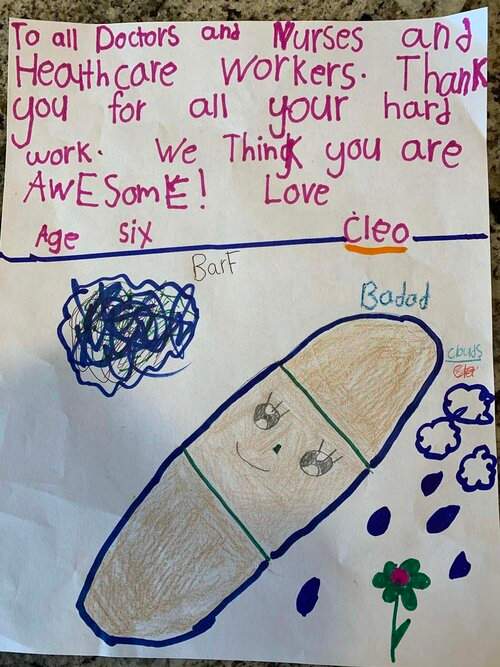 To all Doctors and Nurses and
Heathcare workers. Thank
you for all your hard
work. We Think you are
AwESomE! Love
Age six Cleo
Barf
Badad
clouds